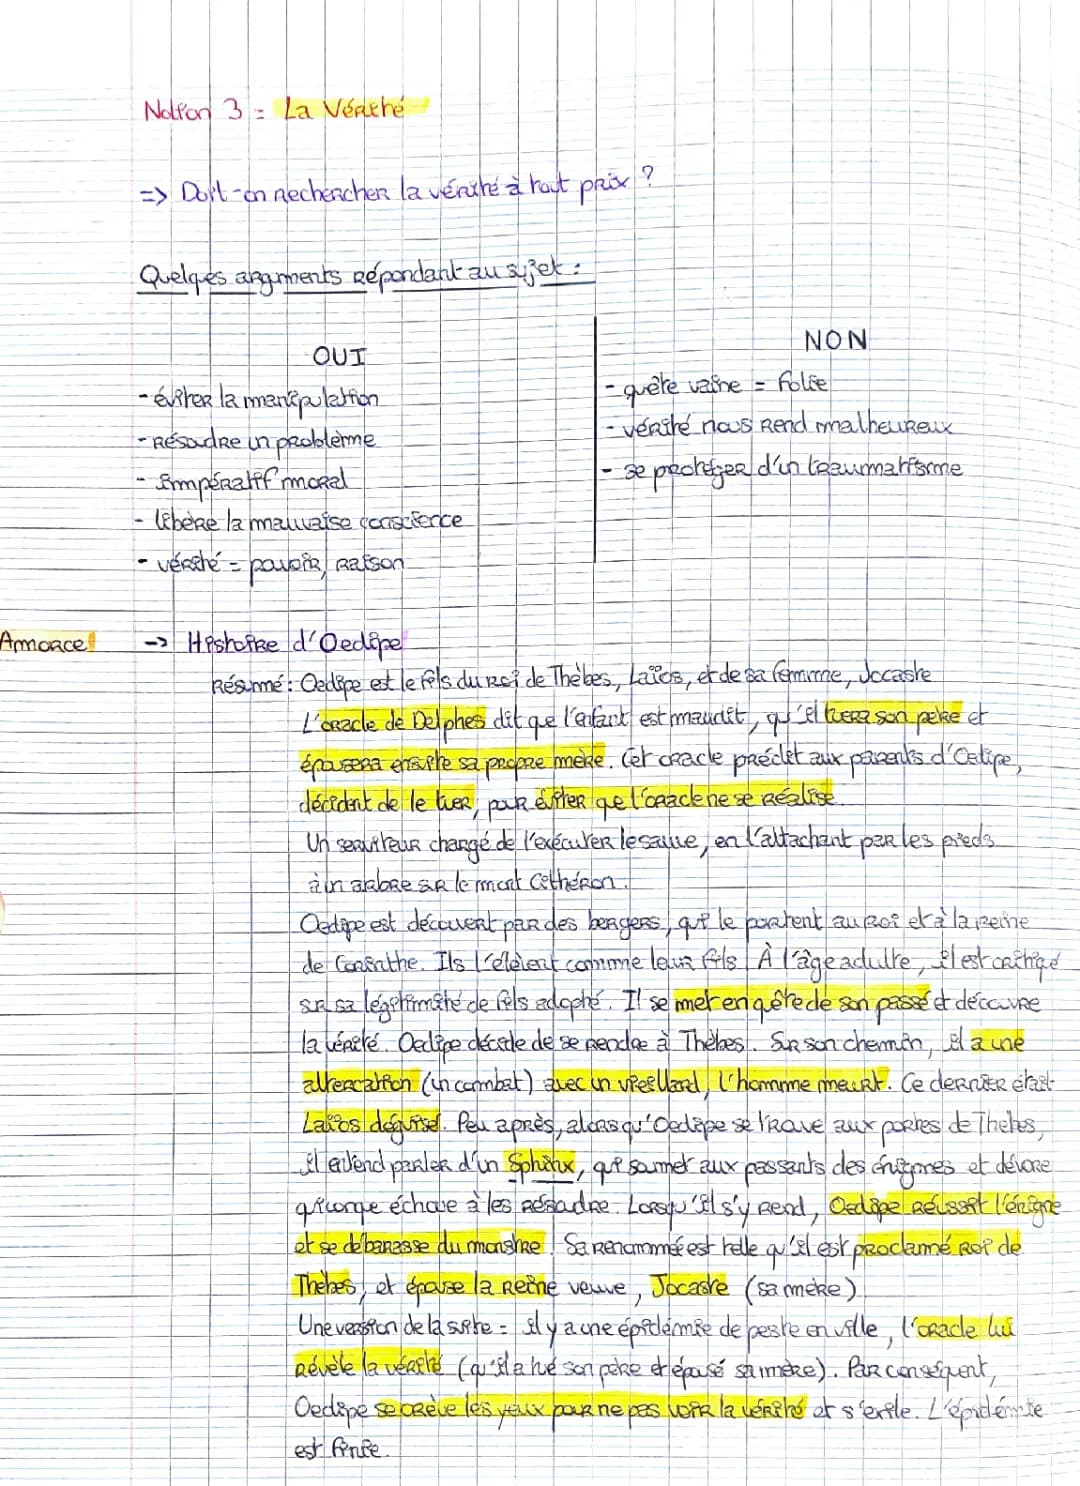 Notion 3 = La Vérité
=> Doit-on rechercher la vérité à tout prix ?
Quelques arguments répondant au sujet :
OUI
- éviter la manipulation
- Résoudre un problème
- impératif moral
- libère la mauvaise conscience
- vérité = pouvoir, raison
NON
- quête vaine = folie
- vérité nous rend malheureux
- se protéger d'un traumatisme
Amorce! -> Histoire d'Oedipe
Résumé : Oedipe est le fils du roi de Thèbes, Laïos, et de sa femme, Jocaste
L'oracle de Delphes dit que l'enfant est maudit, qu'il tuera son père et
épousera ensuite sa propre mère. Cet oracle prédit aux parents d'Oedipe,
décident de le tuer, pour éviter que l'oracle ne se réalise.
Un serviteur chargé de l'exécuter le sauve, en l'attachant par les pieds
à un arbre sur le mont Cithéron.
Oedipe est découvert par des bergers, qui le portent au roi et à la reine
de Corinthe. Ils l'élèvent comme leur fils. À l'âge adulte, il est critiqué
sur sa légitimité de fils adopté. Il se met en quête de son passé et découvre
la vérité. Oedipe décide de se rendre à Thèbes. Sur son chemin, il a une
altercation (un combat) avec un vieillard, l'homme meurt. Ce dernier était
Laïos déguisé. Peu après, alors qu'Oedipe se trouve aux portes de Thèbes,
il entend parler d'un Sphinx, qui soumet aux passants des énigmes et dévore
quiconque échoue à les résoudre. Lorsqu'il s'y rend, Oedipe réussit l'énigme
et se débarasse du monstre. Sa renommée est telle qu'il est proclamé Roi de
Thèbes, et épouse la Reine veuve, Jocaste (sa mère)
Une version de la suite = il y a une épidémie de peste en ville, l'oracle lui
révèle la vérité (qu'il a tué son père et épousé sa mère). Par conséquent,
Oedipe se crève les yeux pour ne pas voir la vérité et s'exile. L'épidémie
est finie.